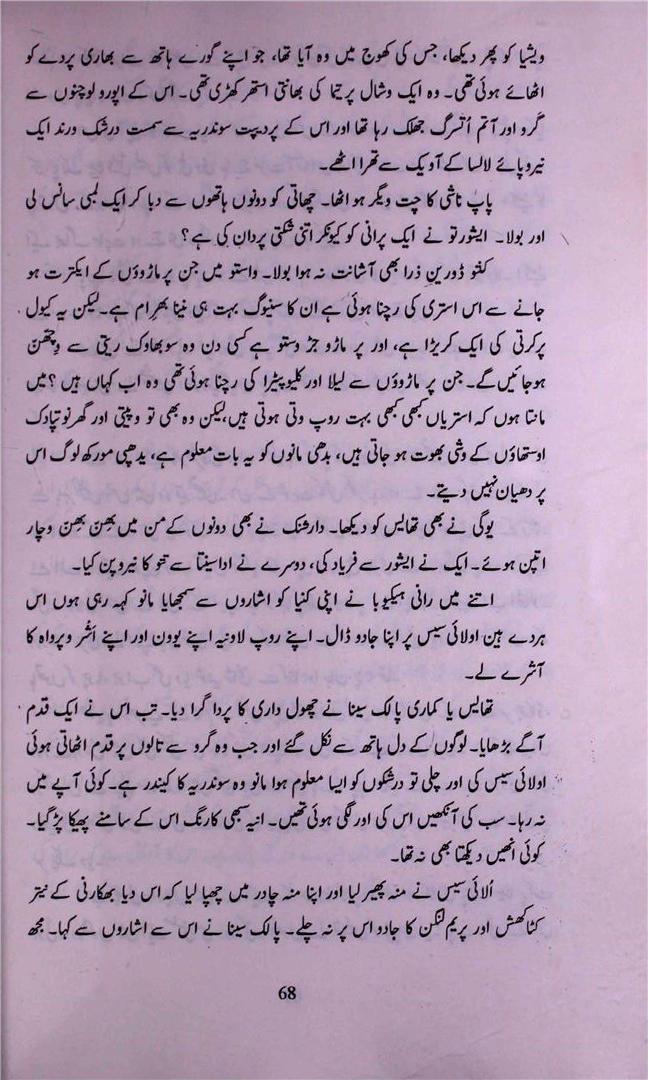 ویشیا کو پھر دیکھا، جس کی کھوج میں وہ آیا تھا، جو اپنے گورے ہاتھ سے بھاری پردے کو
اٹھائے ہوئی تھی۔ وہ ایک وشال پرتیما کی بھانتی استھر کھڑی تھی۔ اس کے اپورو لوچنوں سے
گرو اور آتم اُتسرگ جھلک رہا تھا اور اس کے پردیپت سوندریہ سے سمست درشک ورند ایک
نیروپائے لالسا کے آویگ سے تھرا اٹھے۔
پاپ ناشی کا چت ویگر ہو اٹھا۔ چھاتی کو دونوں ہاتھوں سے دبا کر ایک لمبی سانس لی
اور بولا۔ ایشور تو نے ایک پرانی کو کیونکر اتنی شکتی پردان کی ہے؟
کنتو ڈورین ذرا بھی آشانت نہ ہوا بولا۔ واستو میں جن پرماڑوؤں کے ایکترت ہو
جانے سے اس استری کی رچنا ہوئی ہے ان کا سنیوگ بہت ہی نینا بھرام ہے۔ لیکن یہ کیول
پرکرتی کی ایک کریڑا ہے، اور پرماڑو جڑ وستو ہے کسی دن وہ سوبھاوک ریتی سے وچھنّ
ہوجائیں گے۔ جن پرماڑوؤں سے لیلا اور کلیوپیٹرا کی رچنا ہوئی تھی وہ اب کہاں ہیں؟ میں
مانتا ہوں کہ استریاں کبھی کبھی بہت روپ وتی ہوتی ہیں، لیکن وہ بھی تو وپتی اور گھرنوتپادک
اوستھاؤں کے وشی بھوت ہو جاتی ہیں، بدھی مانوں کو یہ بات معلوم ہے، یدھپی مورکھ لوگ اس
پر دھیان نہیں دیتے۔
یوگی نے بھی تھالیس کو دیکھا۔ دارشنک نے بھی دونوں کے من میں بھِنّ بھِنّ وچار
اتپن ہوئے۔ ایک نے ایشور سے فریاد کی، دوسرے نے اداسینتا سے تتو کا نیروپن کیا۔
اتنے میں رانی ہیکیوبا نے اپنی کنیا کو اشاروں سے سمجھایا مانو کہہ رہی ہوں اس
ہردے ہین اولائی سیس پر اپنا جادو ڈال۔ اپنے روپ لاونیہ اپنے یوون اور اپنے اشر وپرواہ کا
آشرے لے۔
تھالیس یا کماری پالک سینا نے چھول داری کا پردا گرا دیا۔ تب اس نے ایک قدم
آگے بڑھایا۔ لوگوں کے دل ہاتھ سے نکل گئے اور جب وہ گرو سے تالوں پر قدم اٹھاتی ہوئی
اولائی سیس کی اور چلی تو درشکوں کو ایسا معلوم ہوا مانو وہ سوندریہ کا کیندر ہے۔ کوئی آپے میں
نہ رہا۔ سب کی آنکھیں اس کی اور لگی ہوئی تھیں۔ انیہ سبھی کا رنگ اس کے سامنے پھیکا پڑ گیا۔
کوئی انھیں دیکھتا بھی نہ تھا۔
اُلائی سیس نے منہ پھیر لیا اور اپنا منہ چادر میں چھپا لیا کہ اس دیا بھکارنی کے نیتر
کٹاکھش اور پریم لنگن کا جادو اس پر نہ چلے۔ پالک سینا نے اس سے اشاروں سے کہا۔ مجھ
68